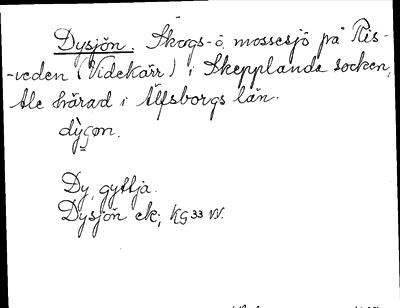 Dysjön. Skogs- o. mossesjö på Ris-
-veden (Videkärr) i Skepplanda socken,
Ale härad i Älfsborgs län.
dy̆çon.
Dy, gyttja.
Dysjön ek; KG 33 VV.